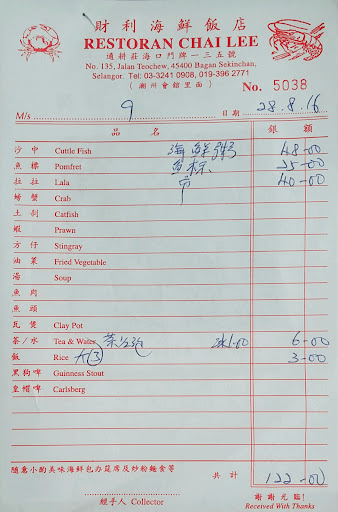 財利海鮮飯店
RESTORAN CHAI LEE
適耕莊海口門牌一三五號
No. 135, Jalan Teochew, 45400 Bagan Sekinchan,
Selangor. Tel: 03-3241 0908, 019-396 2771
(潮州會館里面)
No. 5038
M/s 9 日期 28.8.16
品名 銀額
沙中 Cuttle Fish 海鮮粥 48-00
魚鯧 Pomfret 25-00
拉拉 Lala 40-00
螃蟹 Crab
土利 Catfish
蝦 Prawn
方仔 Stingray
油菜 Fried Vegetable
湯 Soup
魚肉
魚頭
瓦煲 Clay Pot
茶/水 Tea & Water 茶 冰1.00 6-00
飯 Rice 大(3) 3-00
黑狗啤 Guinness Stout
皇帽啤 Carlsberg
隨意小酌美味海鮮包办筵席及炒粉麵食等
共計 122-00
經手人 Collector
謝謝光臨!
Received With Thanks